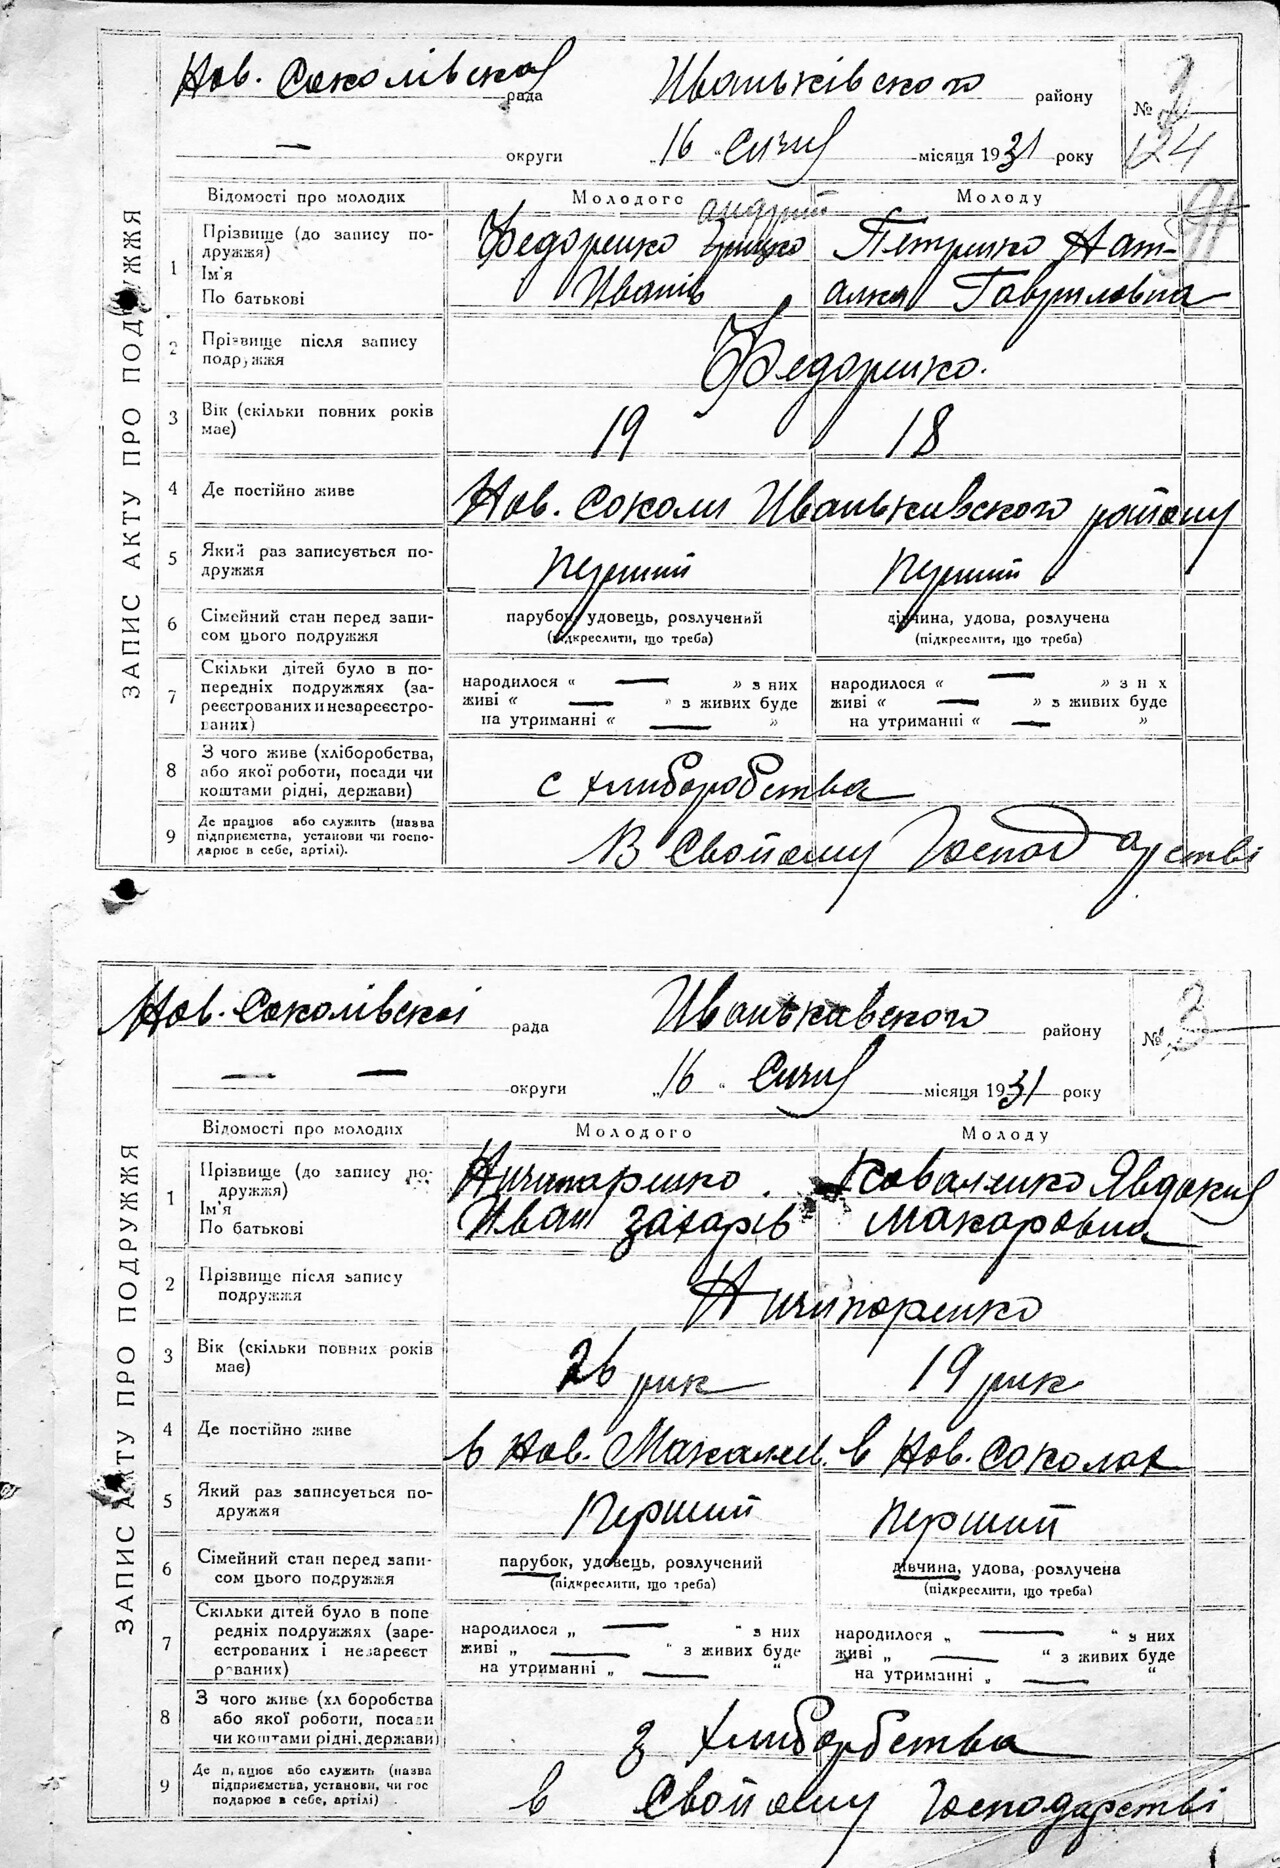 ЗАПИС АКТУ ПРО ПОДРУЖЖЯ
Нов. Соколівска рада Иваньківского району № 2
— округи „16 “ Січня місяця 1931 року 124
Відомості про молодих Молодого Молоду
андрій
1 Прізвище (до запису по- Федоренко Грицко Петренко Нат-
дружжя)
Ім'я
По батькові Иванів алка Гавриловна
2 Прізвище після запису
подружжя Федоренко.
3 Вік (скільки повних років 19 18
має)
4 Де постійно живе Нов. Соколи Иваньkивского району
5 Який раз записується по- перший перший
дружжя
6 Сімейний стан перед запи- парубок, удовець, розлучений дівчина, удова, розлучена
сом цього подружжя (підкреслити, що треба) (підкреслити, що треба)
7 Скільки дітей було в по- народилося « — » з них народилося « — » з них
передніх подружжях (за- живі « — » з живих буде живі « — » з живих буде
реєстрованих и незареєстро- на утриманні « — » на утриманні « — »
ваних)
8 З чого живе (хліборобства,
або якої роботи, посади чи с хлиборобства
коштами рідні, держави)
9 Де працює або служить (назва
підприємства, установи чи госпо- В Свойому Господарстві
дарює в себе, артілі).
ЗАПИС АКТУ ПРО ПОДРУЖЖЯ
Нов. Соколівскоі рада Иваньkавского району № 3
— — округи „16 “ Січня місяця 1931 року
Відомості про молодих Молодого Молоду
1 Прізвище (до запису по- Ничипоренко Коваленко Явдокия
дружжя)
Ім'я Иван Захарів Макаровна
По батькові
2 Прізвище після запису
подружжя Ничипоренко
3 Вік (скільки повних років 26 рик 19 рик
має)
4 Де постійно живе в Нов. Макалев. в Нов. Соколах
5 Який раз записується по- Перший перший
дружжя
6 Сімейний стан перед запи- парубок, удовець, розлучений дівчина, удова, розлучена
сом цього подружжя (підкреслити, що треба) (підкреслити, що треба)
7 Скільки дітей було в попе народилося „ — “ з них народилося „ — “ з них
редніх подружжях (заре- живі „ — “ з живих буде живі „ — “ з живих буде
єстрованих і незареєст на утриманні „ — “ на утриманні „ — “
рованих)
8 З чого живе (хл боробства
або якої роботи, посади з хлиборбства
чи коштами рідні, держави)
9 Де працює або служить (назва
підприємства, установи, чи гос в Свойому Господарстві
подарює в себе, артілі)